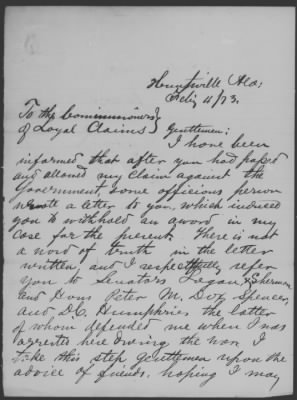 Huntsville Ala;
Feby 11/73.
To the Commissioners }
of Loyal Claims } Gentlemen;
I have been
informed that after you had passed
and allowed my claim against the
Government some officious person
wrote a letter to you, which induced
you to withhold an award in my
case for the present. There is not
a word of truth in the letter
written, and I respectfully refer
you to Senators Logan, & Sherman
and Hons Peter M. Dox, Spencer,
and D.C. Humphries the latter
of whom defended me when I was
arrested here during the war. I
take this step gentlemen upon the
advice of friends, hoping I may